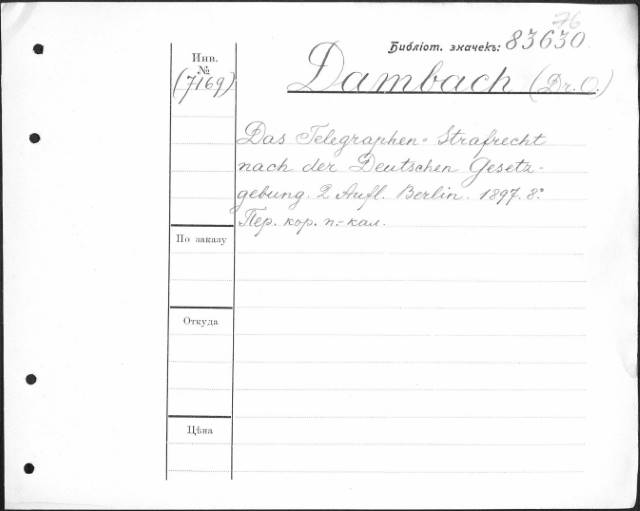 76
Библіот. значекъ: 83630
Инв.
№
(7169)
Dambach (Dr. O.)
Das Telegraphen-Strafrecht
nach der Deutschen Gesetz-
gebung. 2 Aufl. Berlin. 1897. 8º.
Пер. кор. п.-кал.
По заказу
Откуда
Цѣна